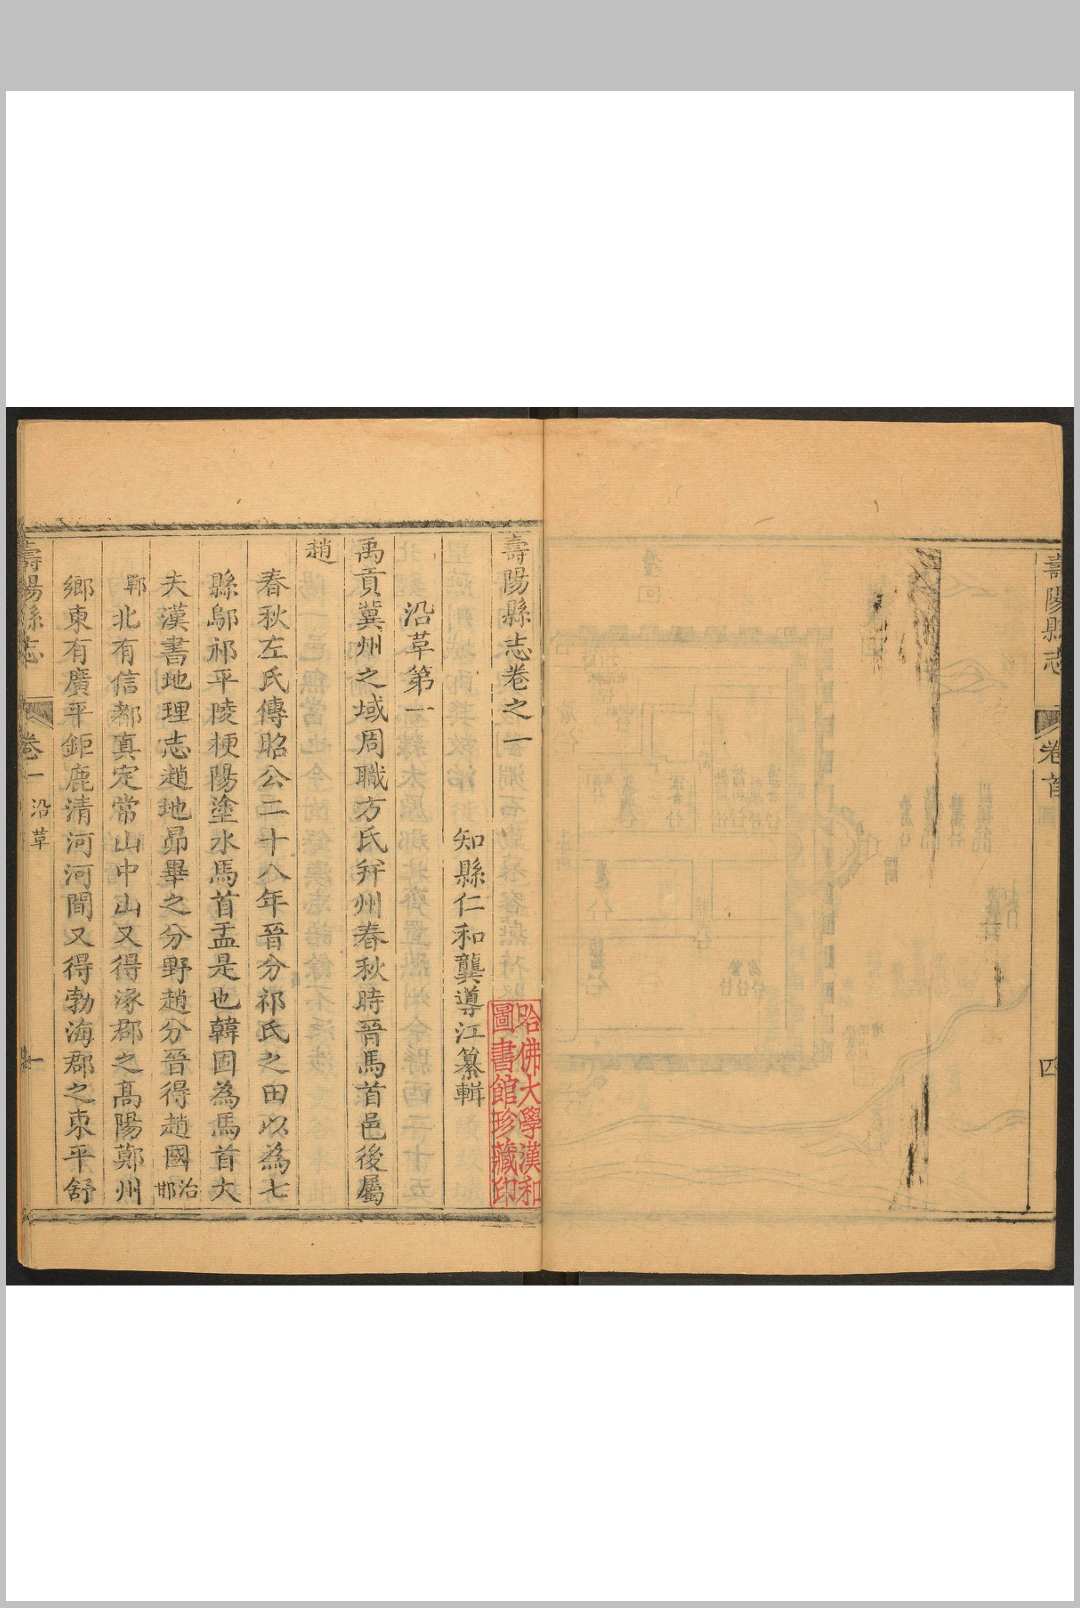 壽陽縣志
卷首
四
壽陽縣志卷之一
知縣仁和龔導江纂輯
沿革第一
禹貢冀州之域周職方氏幷州春秋時晉馬首邑後屬
趙
春秋左氏傳昭公二十八年晉分祁氏之田以為七
縣鄔祁平陵梗陽塗水馬首盂是也韓固為馬首大
夫漢書地理志趙地昴畢之分野趙分晉得趙國治邯
鄲北有信都真定常山中山又得涿郡之高陽鄚州
鄉東有廣平鉅鹿清河河間又得勃海郡之東平舒
壽陽縣志
卷一
沿革
一
哈佛大學漢和
圖書館珍藏印